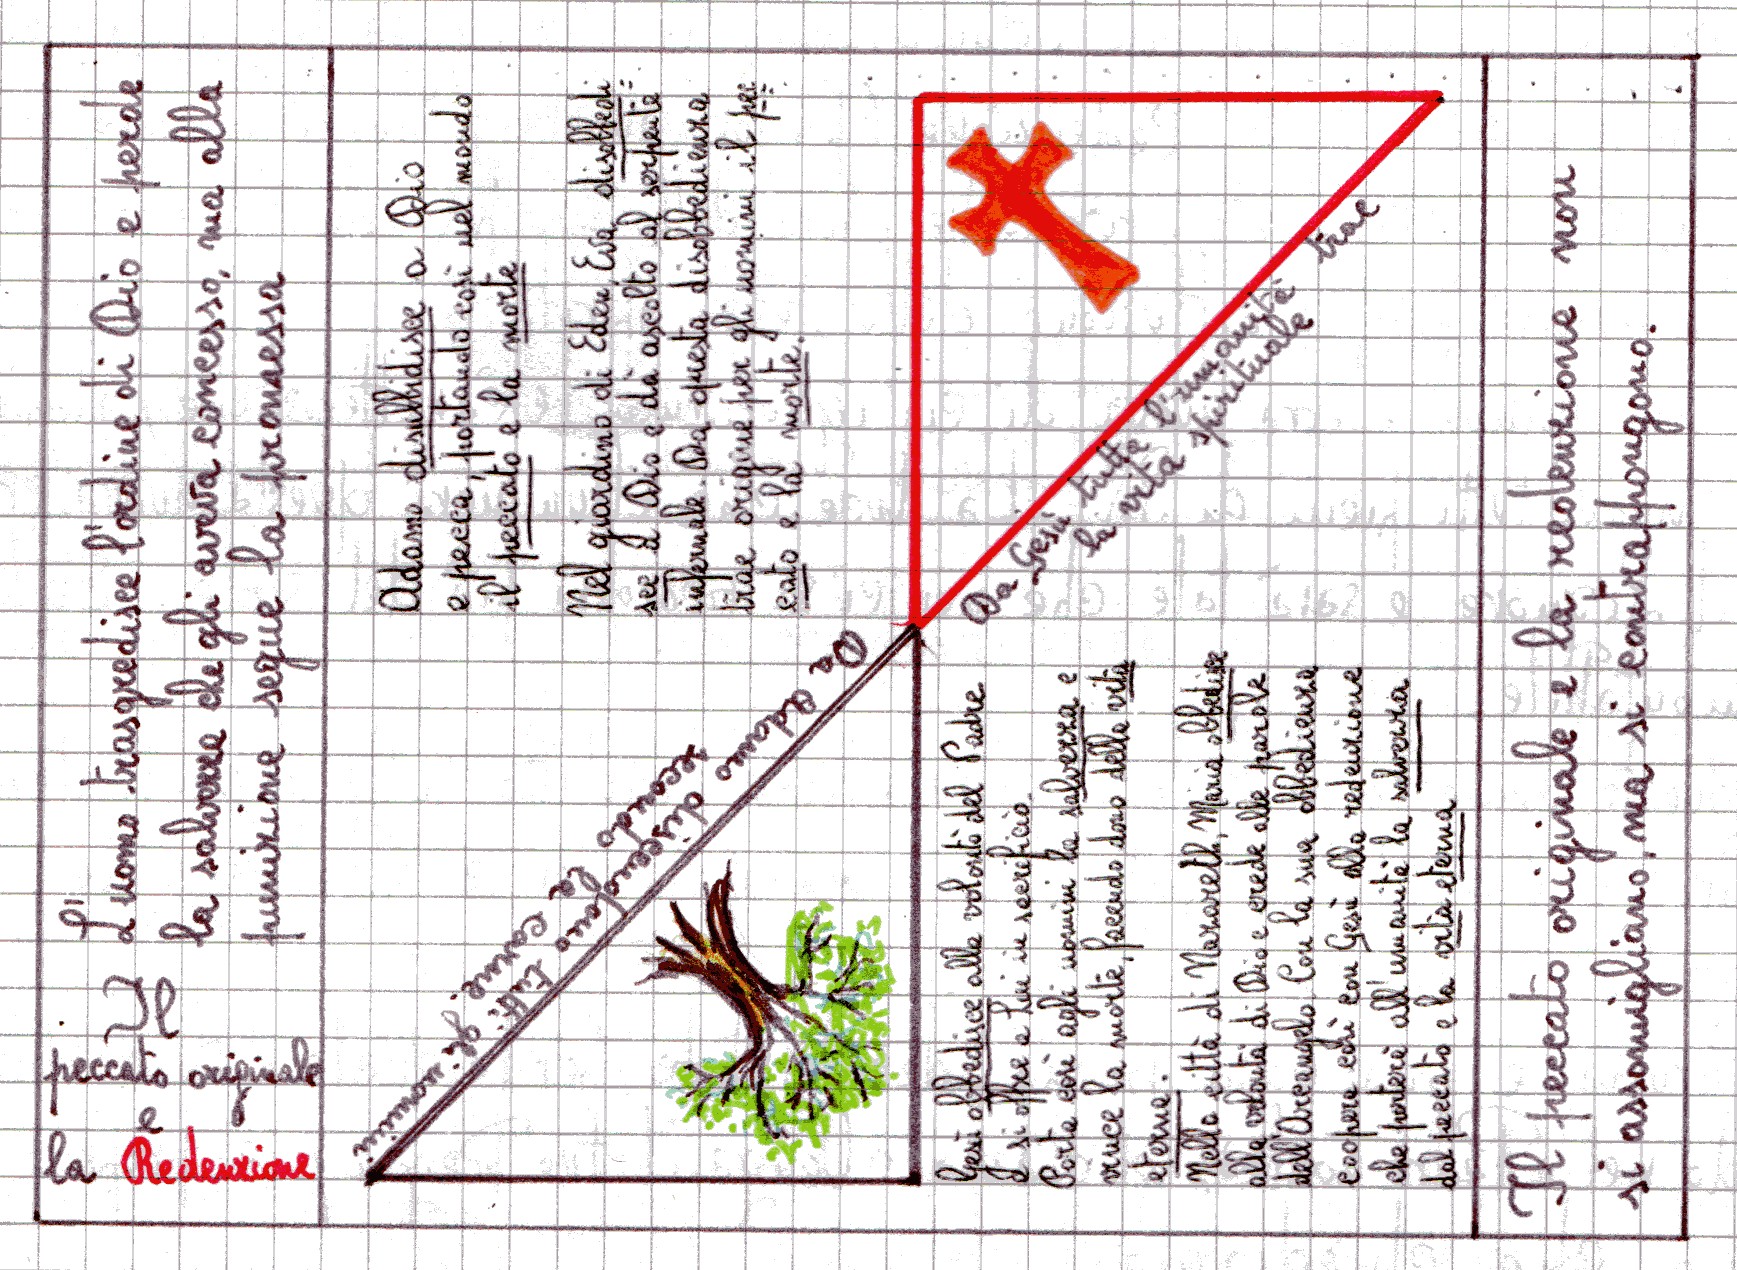 Il
peccato originale
e
la Redenzione
L'uomo trasgredisce l'ordine di Dio e perde
la salvezza che gli aveva concesso, ma alla
punizione segue la promessa
Adamo disubbidisce a Dio
e pecca, portando così nel mondo
il peccato e la morte
Nel giardino di Eden, Eva disobbedi
sce a Dio e dà ascolto al serpente
infernale. Da questa disobbedienza
trae origine per gli uomini il pec
cato e la morte.
Da Adamo discendono tutti gli uomini
secondo la carne.
Da Gesù tutta l'umanità trae
la vita spirituale
Gesù obbedisce alla volontà del Padre
e si offre a Lui in sacrificio.
Porta così agli uomini la salvezza e
vince la morte, facendo dono della vita
eterna.
Nella città di Nazareth, Maria obbedisce
alla volontà di Dio e crede alle parole
dell'Arcangelo. Con la sua obbedienza
coopera così con Gesù alla redenzione
che porterà all'umanità la salvezza
dal peccato e la vita eterna
Il peccato originale e la redenzione non
si assomigliano, ma si contrappongono.